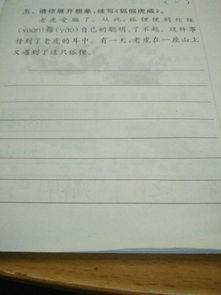 五、请你展开想象,续写《狐假虎威》。
老虎受骗了。从此,狐狸便到处炫
(xuàn)耀(yào)自己的聪明、了不起。这件事
传到了老虎的耳中。有一天,老虎在一座山上
又遇到了这只狐狸。